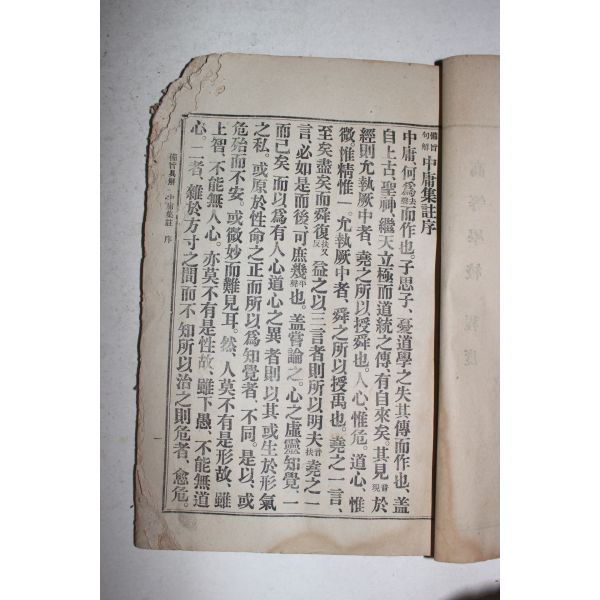 備旨句解 中庸集註序
中庸、何爲去聲而作也。子思子、憂道學之失其傳而作也、盖
自上古聖神、繼天立極而道統之傳、有自來矣。其見音現於
經則允執厥中者、堯之所以授舜也。人心、惟危。道心、惟
微。惟精惟一、允執厥中者、舜之所以授禹也。堯之一言、
至矣盡矣而舜復扶又反益之以三言者則所以明夫音扶堯之一
言、必如是而後、可庶幾平聲也。盖嘗論之。心之虛靈知覺、一
而已矣而以爲有人心道心之異者則以其或生於形氣
之私、或原於性命之正而所以爲知覺者、不同。是以、或
危殆而不安。或微妙而難見耳。然、人莫不有是形故、雖
上智、不能無人心。亦莫不有是性故、雖下愚、不能無道
心。二者、雜於方寸之間而不知所以治之則危者、愈危。
備旨具解 中庸集註 序 一